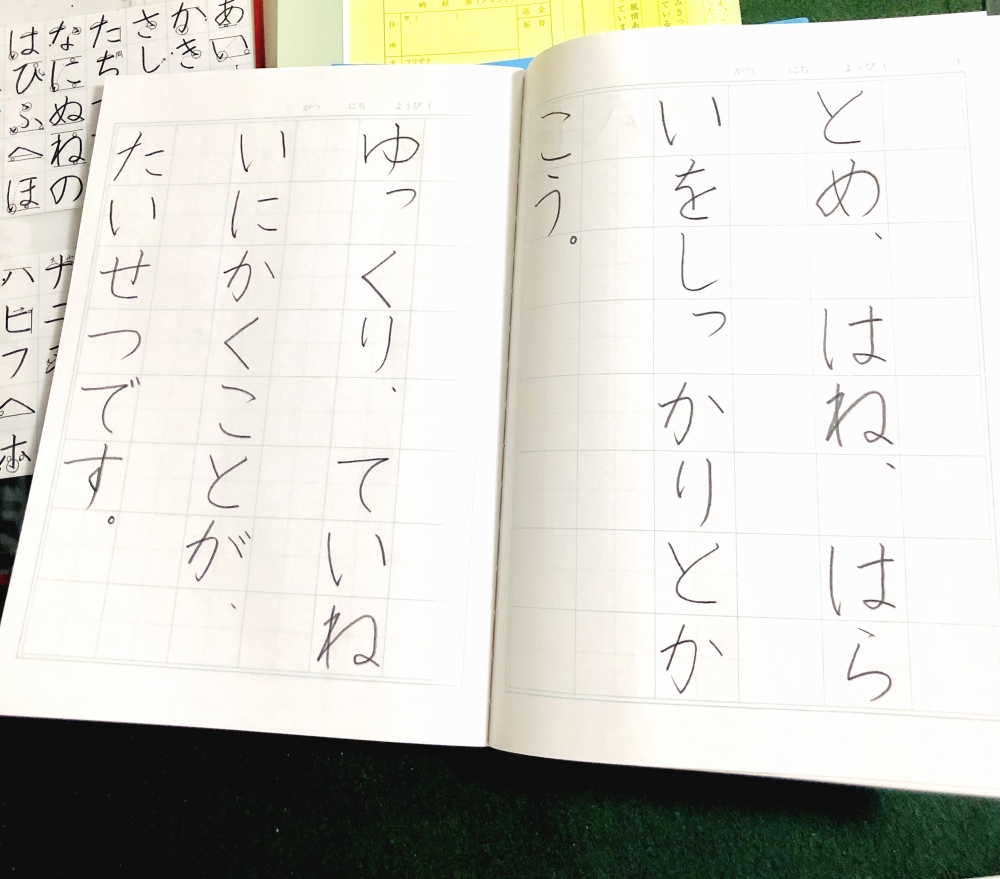 がつ にち ようび（ ）
とめ、 はねね、 はら
いをしっかりとか
こう。
がつ にち ようび（
ゆっくり、 ていね
いにかくことが、
たいせつです。
あい
かき
さし
たち
なにぬねの
はひふへほ
ハヒフヘホ
住所
フリガナ
風情あ
ていま